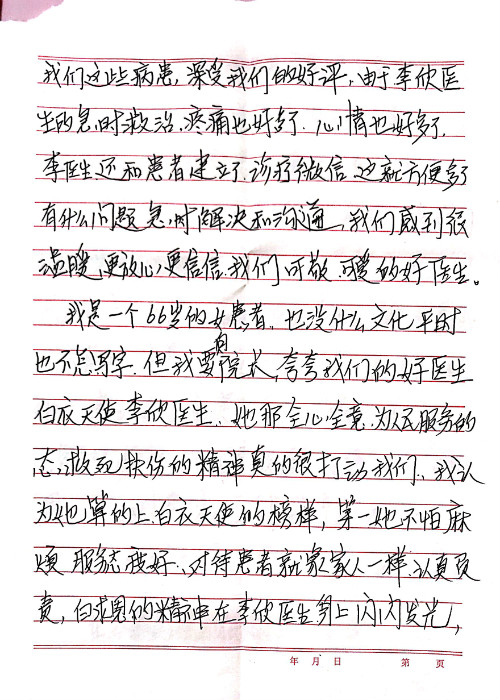 我们这些病患，深受我们的好评，由于李欣医
生的急时救治，疼痛也好多了．心情也好多了，
李医生还和患者建立了，诊疗微信，这就方便多了
有什么问题急时解决和沟通，我们感到很
温暖，更放心，更信信，我们可敬，可爱的好医生。
我是一个66岁的女患者，也没什么文化平时
也不怎写字．但我要向院长，夸夸我们的好医生
白衣天使李欣医生．她那全心全意，为人民服务的
态，救死扶伤的精神真的很打动我们，我认
为她算的上白衣天使的榜样，第一她不怕麻
烦 服务态我好．对待患者就象家人一样．认真负
责，白求恩的精神在李欣医生身上闪闪发光，
年 月 日 第 页